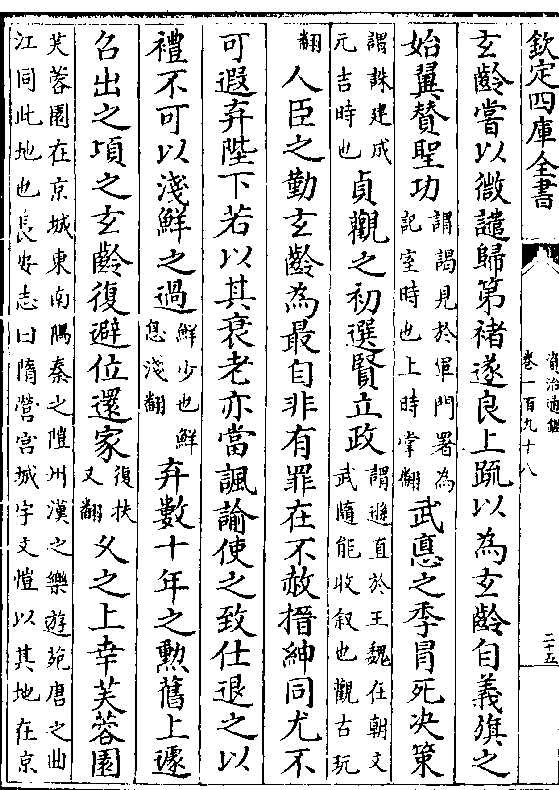 欽定四庫全書
資治通鑑
卷一百九十八
二十五
玄齡嘗以微譴歸第禇遂良上疏以為玄齡自義旗之
始翼賛聖功謂謁見於軍門署為記室時也上時掌翻武悳之季冐死决策
謂誅建成元吉時也貞觀之初選賢立政謂遜直於王魏任朝文武隨能收叙也觀古玩
翻人臣之勤玄齡為最自非有罪在不赦搢紳同尤不
可遐弃陛下若以其衰老亦當諷諭使之致仕退之以
禮不可以淺鮮之過鮮少也鮮息淺翻弃數十年之勲舊上遽
召出之頃之玄齡復避位還家復扶又翻乆之上幸芙蓉園
芙蓉園在京城東南隅秦之隑州漢之樂遊苑唐之曲
江同此地也長安志曰隋營宫城宇文愷以其地在京